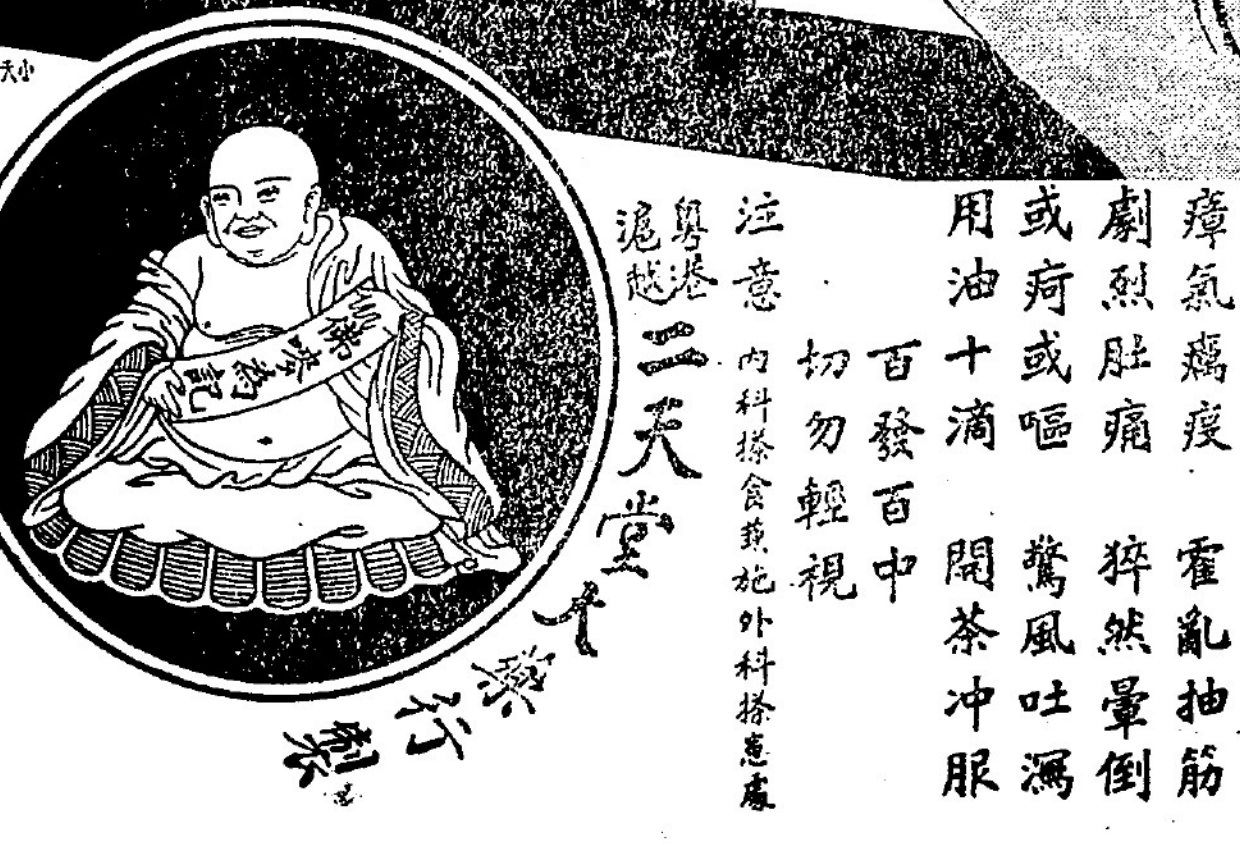 瘴氣癘疫 霍亂抽筋
劇烈肚痛 猝然暈倒
或疴或嘔 驚風吐瀉
用油十滴 開茶冲服
百發百中
切勿輕視
注意 內科搽食兼施外科搽患處
粵港
滬越
二天堂大藥行製
佛嘜為記